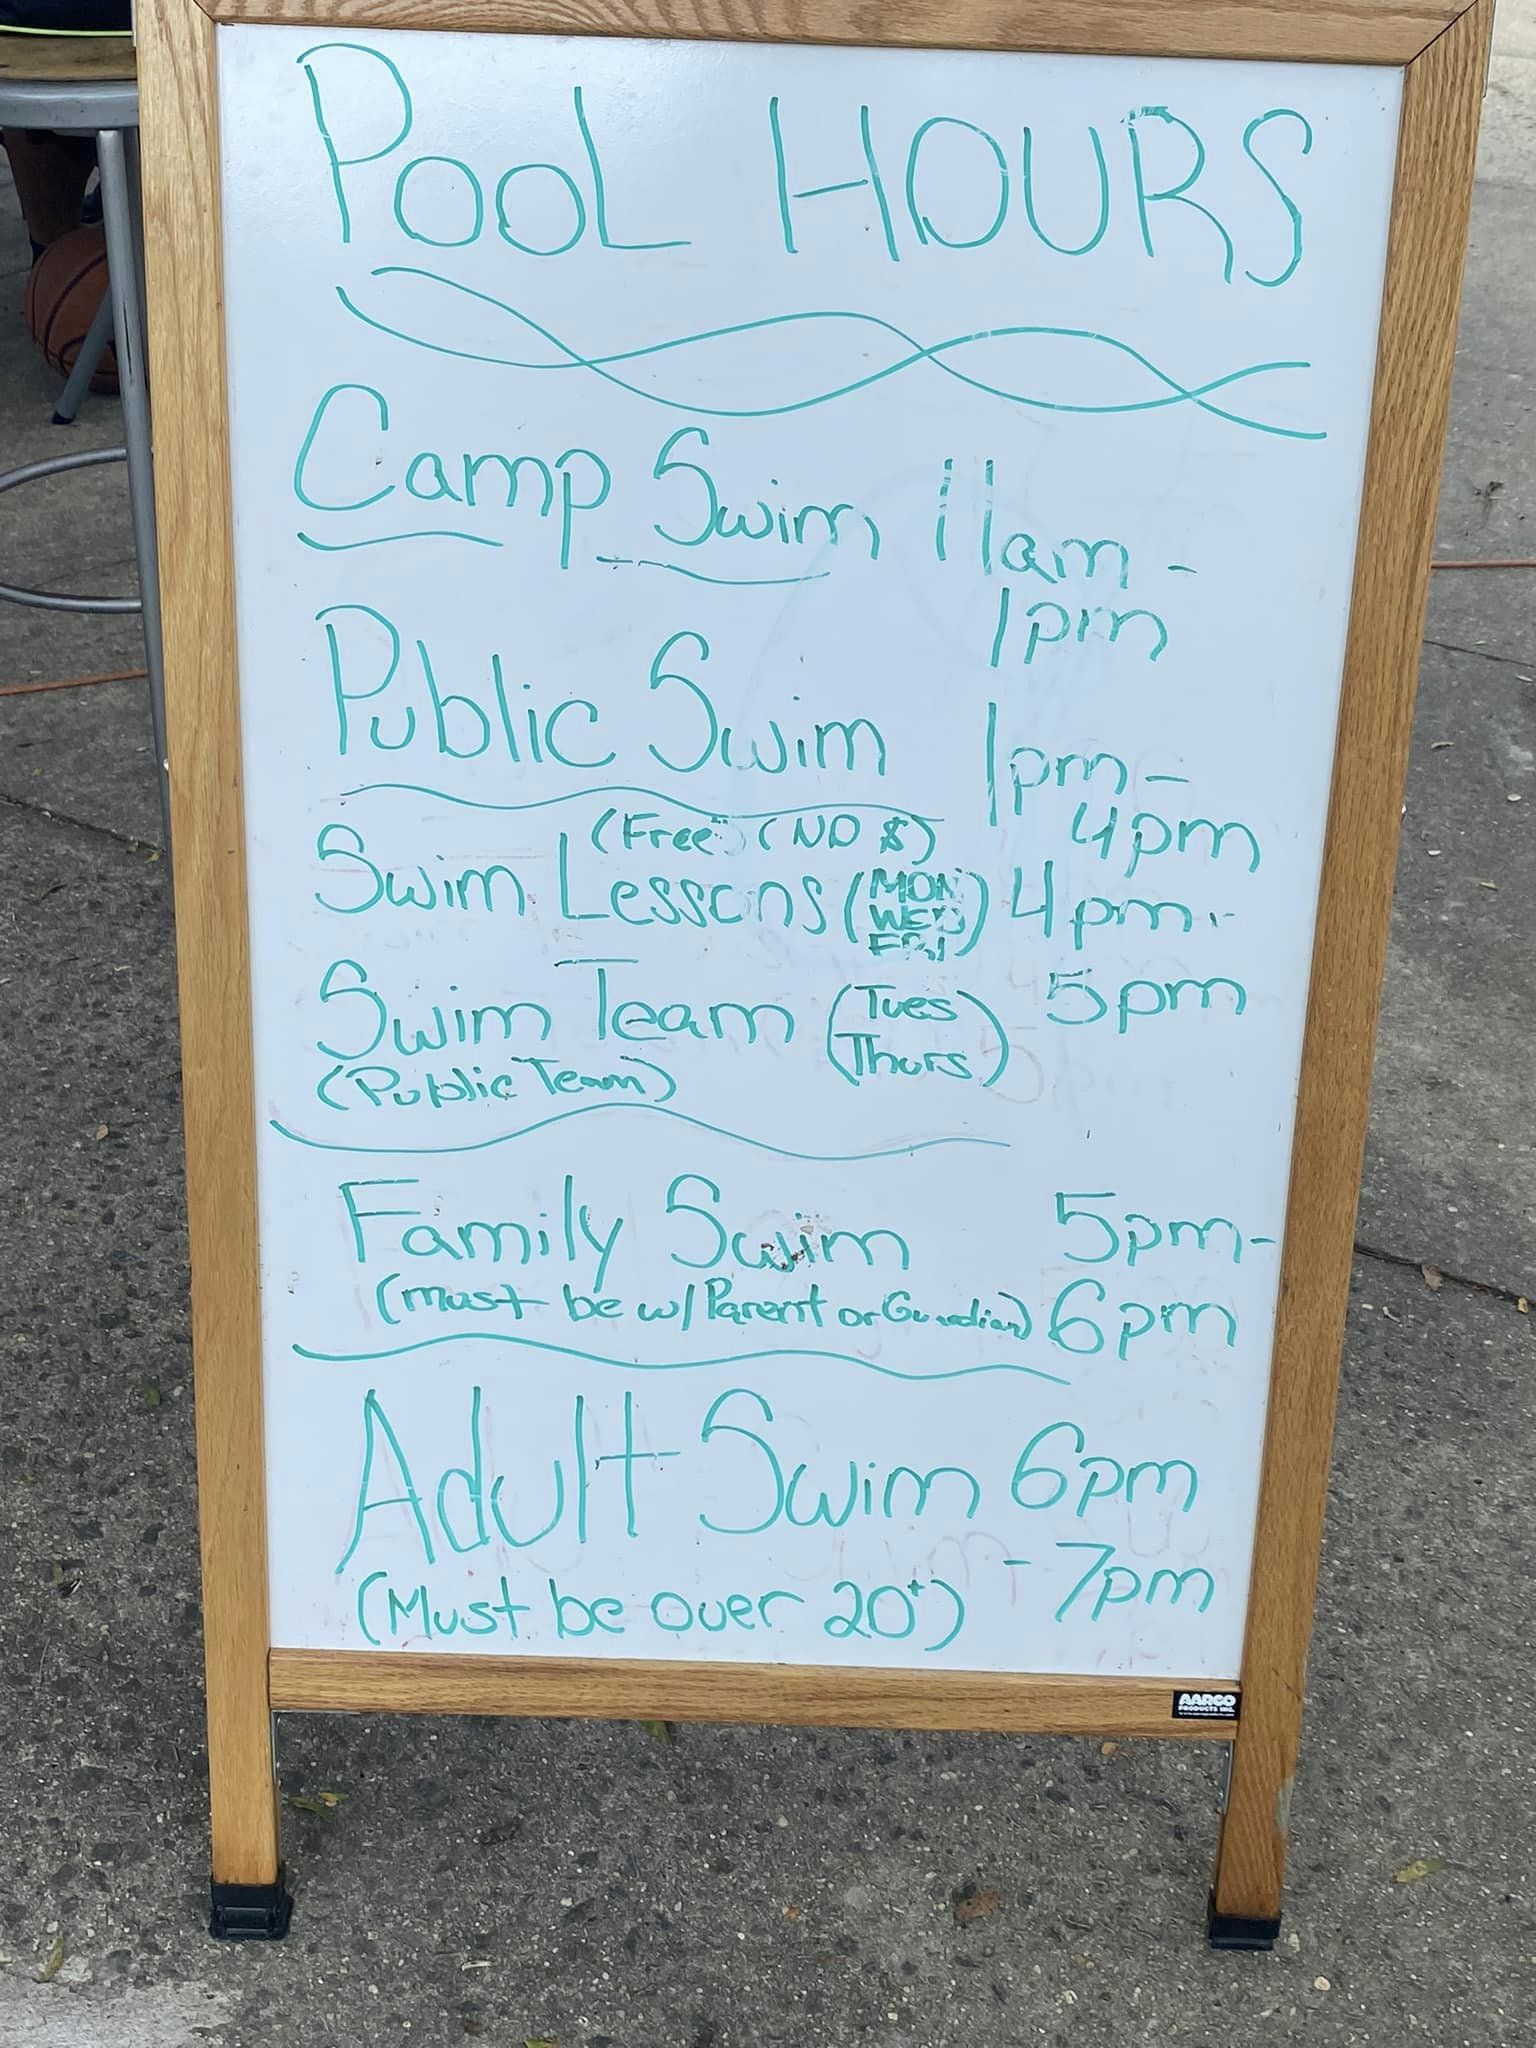 POOL HOURS
Camp Swim 11am -
1pm
Public Swim 1pm -
4pm
(Free) (NO $)
Swim Lessons (MON WED FRI) 4pm -
5pm
Swim Team (Tues Thurs)
(Public Team)
Family Swim 5pm -
(must be w/ Parent or Guardian) 6pm
Adult Swim 6pm
- 7pm
(Must be over 20+)
AARCO
PRODUCTS INC.